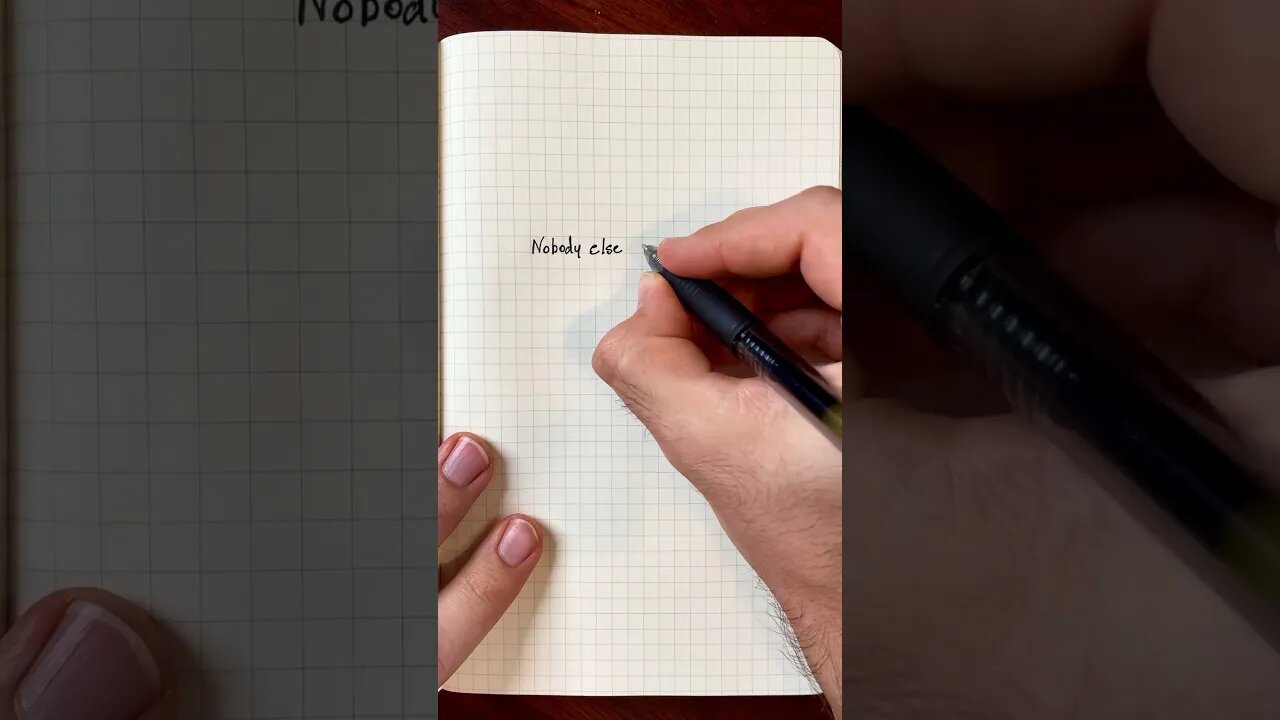 Nobody else